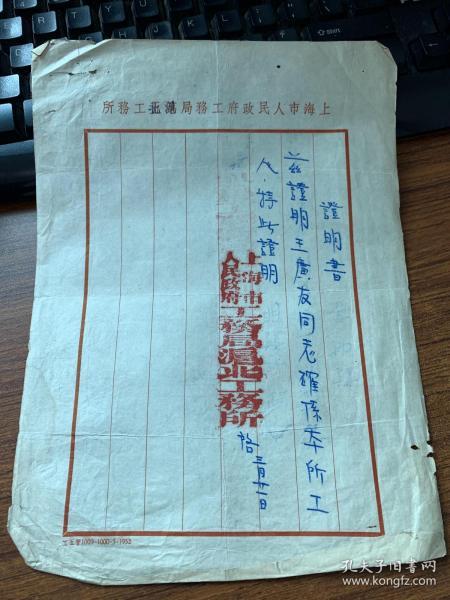 上海市人民政府工務局滬北工務所
證明書
茲證明王廣友同志確係本所工
人.特此證明
上海市
人民政府
工務局滬北工務所
啓
三月廿一日
工五會1009-1000-3-1952
孔夫子旧书网
www.kongfz.com